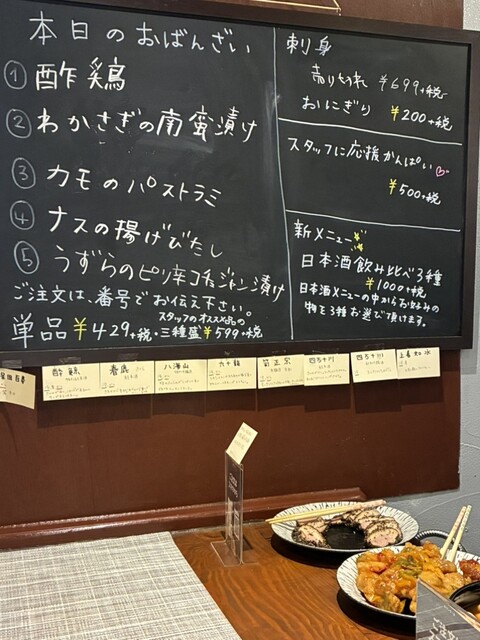 本日のおばんざい
① 酢鶏
② わかさぎの南蛮漬け
③ カモのパストラミ
④ ナスの揚げびたし
⑤ うずらのピリ辛コチュジャン漬け
ご注文は、番号でお伝え下さい。
スタッフのオススメ品の
単品¥429+税・三種盛¥599+税
刺身
売り切れ ¥699+税
おにぎり ¥200+税
スタッフに応援かんぱい♡
¥500+税
新メニュー
日本酒飲み比べ3種
¥1000+税
日本酒メニューの中からお好みの
物を3種お選び頂けます。
八海山
四万十川
四万十川
上善如水